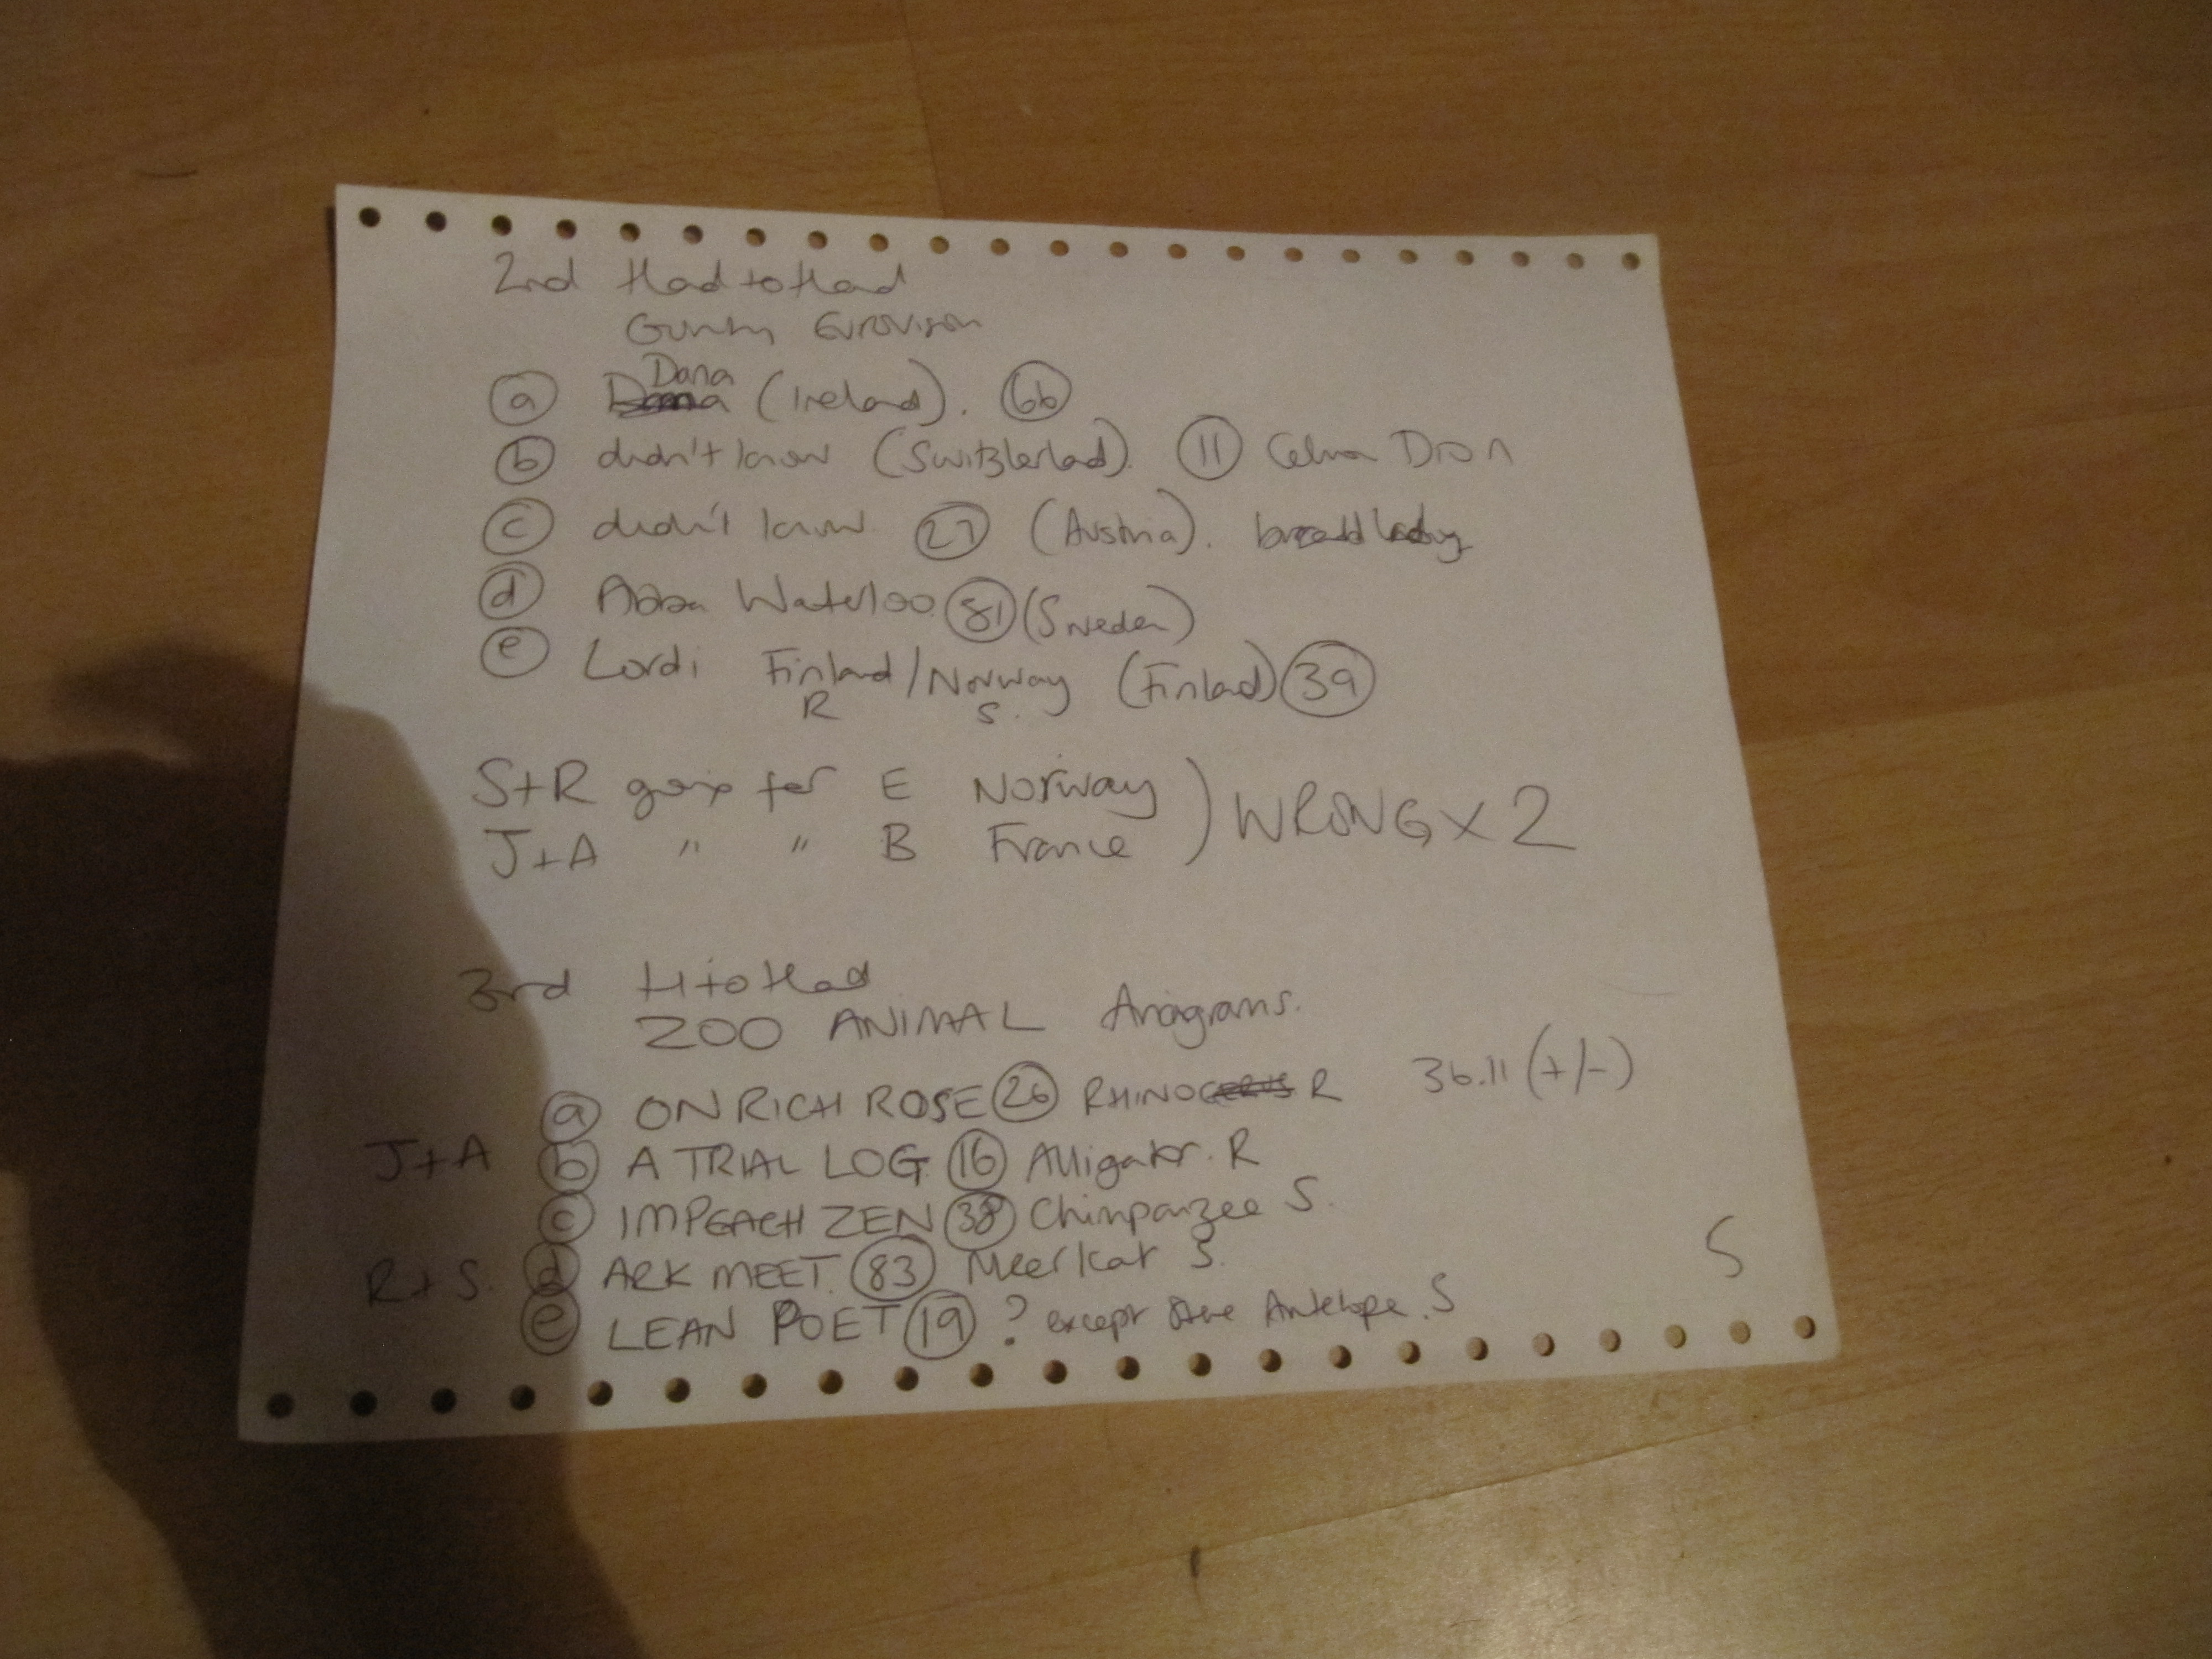 2nd Head to Head
Eurovision
(a) Dana (Ireland). (66)
(b) didn't know (Switzlerlad). (11) Dion
(c) didn't know (27) (Austria).
(d) Abba Waterloo (81) (Sweden)
(e) Lordi Finland/Norway (Finlad) (39)
R S.
S+R going for E Norway ) WRONG x 2
J+A " " B France
3rd H to Head
ZOO ANIMAL Anagrams.
(a) ON RICH ROSE (26) RHINOCERUS R 36.11 (+/-)
J+A (b) A TRIAL LOG (16) Alligator. R
(c) IMPEACH ZEN (38) Chimpanzee S.
R+S. (d) ARK MEET. (83) Meerkat S.
(e) LEAN POET (19) ? except Steve Antelope. S
S